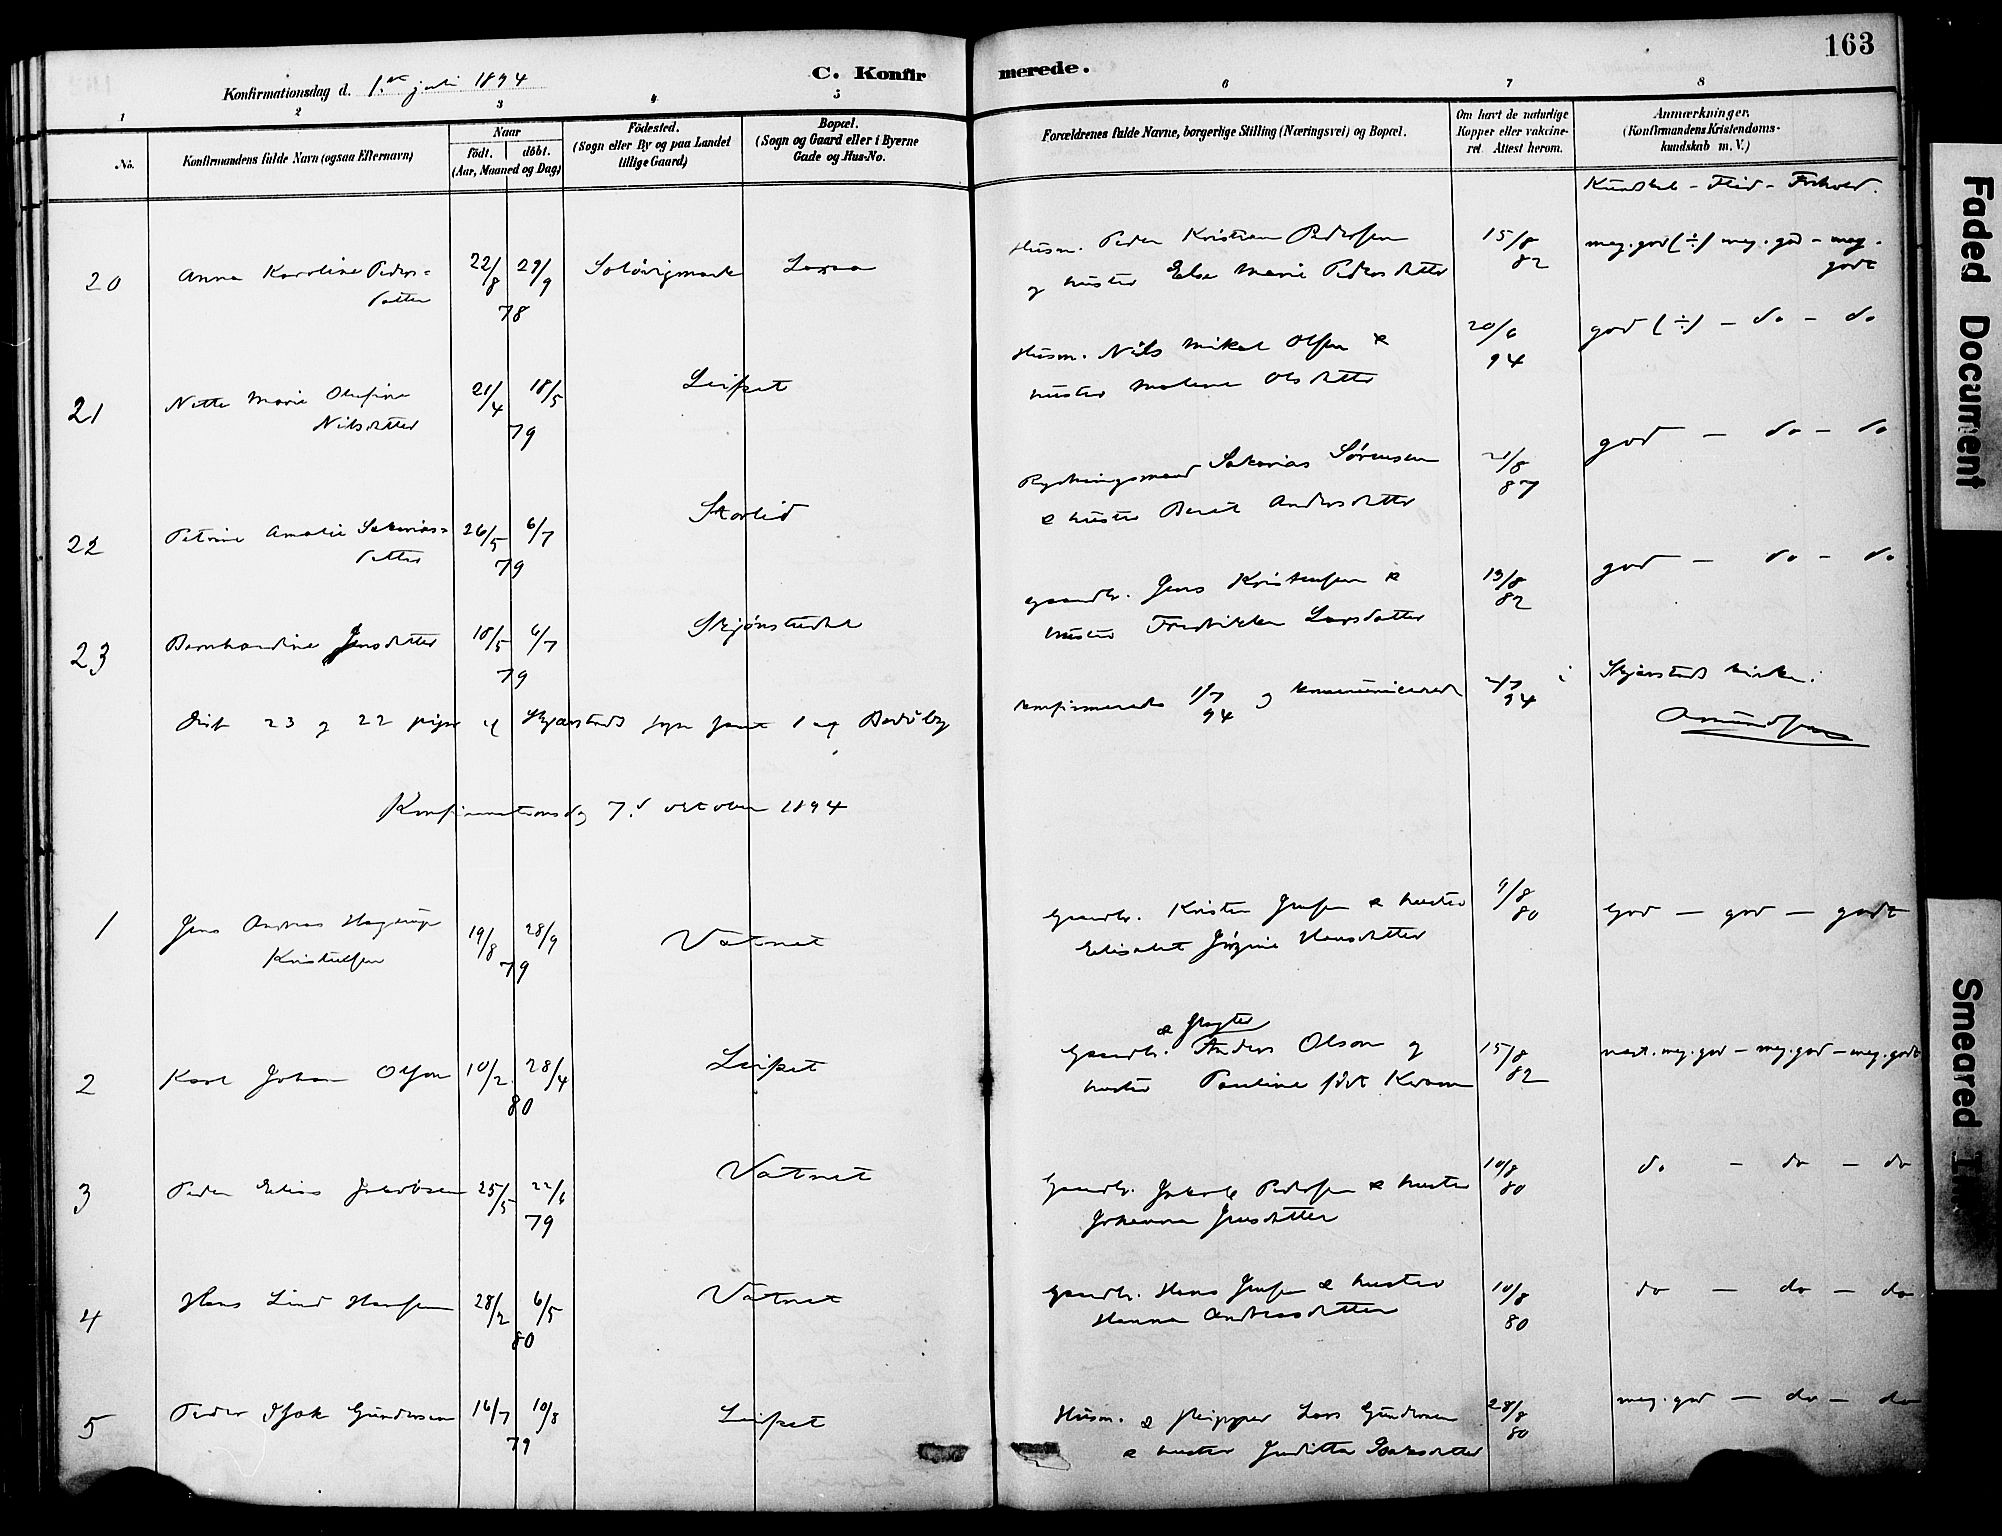 163
C. Konfirmerede.
Konfirmationsdag d. 1ste juli 1894
1 2 3 4 5 6 7 8
No.
Konfirmandens fulde Navn (ogsaa Efternavn)
Naar
födt. döbt.
(Aar, Maaned og Dag)
Födested.
(Sogn eller By og paa Landet
tillige Gaard)
Bopæl.
(Sogn og Gaard eller i Byerne
Gade og Hus-No.
Forældrenes fulde Navne, borgerlige Stilling (Næringsvei) og Bopæl.
Om havt de naturlige
Kopper eller vakcine-
ret. Attest herom.
Anmærkninger.
(Konfirmandens Kristendoms-
kundskab m. V.)
Kundskab - Flid - Forhold.
20 Anna Karoline Peders-
datter
22/8 29/9
78
Husm. Peder Kristian Pedersen
og hustru Else Marie Pedersdatter
15/8
82
meg. god (÷) meg. god - meg.
godt
21 Nette Marie Olufine
Nilsdatter
21/4 18/5
79
Leifset
Husm. Nils Mikal Olsen &
hustru Malene Olsdatter
20/6
94
god (÷) - do - do
22 Petrine Amalie Sakarias-
datter
26/5 6/7
79
Skarlid
Rydningsmand Sakarias Sørensen
& hustru Berit Andersdatter
21/8
87
god - do - do
23 Bernhardine Jensdatter
18/5 6/7
79
Skjønstadet
Gaardbr. Jens Kristensen &
hustru Fredrikke Larsdatter
13/8
82
god - do - do
23 og 22 piger af Skjærstad sogn samt 1 af Bodø by
konfirmerede 1/7 94 og kommunicerede 2/7 94 i Skjærstad kirke.
Amundsen
Konfirmationsdag 7.d october 1894
1 Jens Andreas Hagerup
Kristensen
19/8 28/9
79
Vatnet
Gaardbr. Kristen Jensen & hustru
Elisabet Jørgine Hansdatter
9/8
80
God - god - godt
2 Karl Johan Olsen
10/2 28/4
80
Leifset
Gaardbr. Anders Olsen og
hustru Pauline født Kvam
15/8
82
næst. meg. god - meg. god - meg. godt
3 Peder Elias Jakobsen
25/5 22/6
79
Vatnet
Gaardbr. Jakob Pedersen & hustru
Johanna Jensdatter
10/8
80
do - do - do
4 Hans Lind Hansen
28/2 6/5
80
Vatnet
Gaardbr. Hans Jensen & hustru
Hanna Andreasdatter
10/8
80
do - do - do
5 Peder Isak Gundersen
16/7 10/8
79
Leifset
Husm. & skipper Lars Gundersen
& hustru Juditta Isaksdatter
28/8
80
meg. god - do - do
Faded Document
Smeared Ink